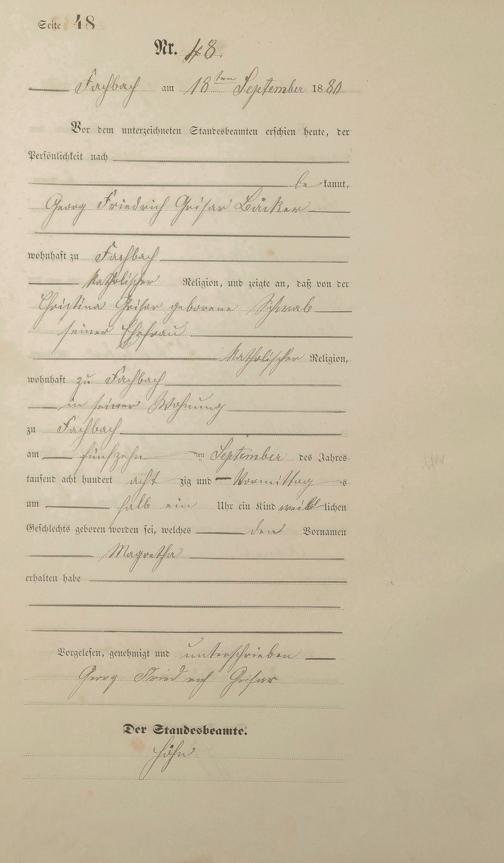 Seite 48
Nr. 48.
Fachbach am 18ten September 1880
Vor dem unterzeichneten Standesbeamten erschien heute, der
Persönlichkeit nach
be kannt,
Georg Friedrich Grisar Bäcker
wohnhaft zu Fachbach
katholischer Religion, und zeigte an, daß von der
Christina Grisar geborene Schwab
seiner Ehefrau
katholischer Religion,
wohnhaft zu Fachbach
in seiner Wohnung
zu Fachbach
am fünfzehn ten September des Jahres
tausend acht hundert acht zig und Vormittag s
um halb ein Uhr ein Kind weib lichen
Geschlechts geboren worden sei, welches den Vornamen
Magretha
erhalten habe
Vorgelesen, genehmigt und unterschrieben
Georg Friedrich Grisar
Der Standesbeamte.
Höhn